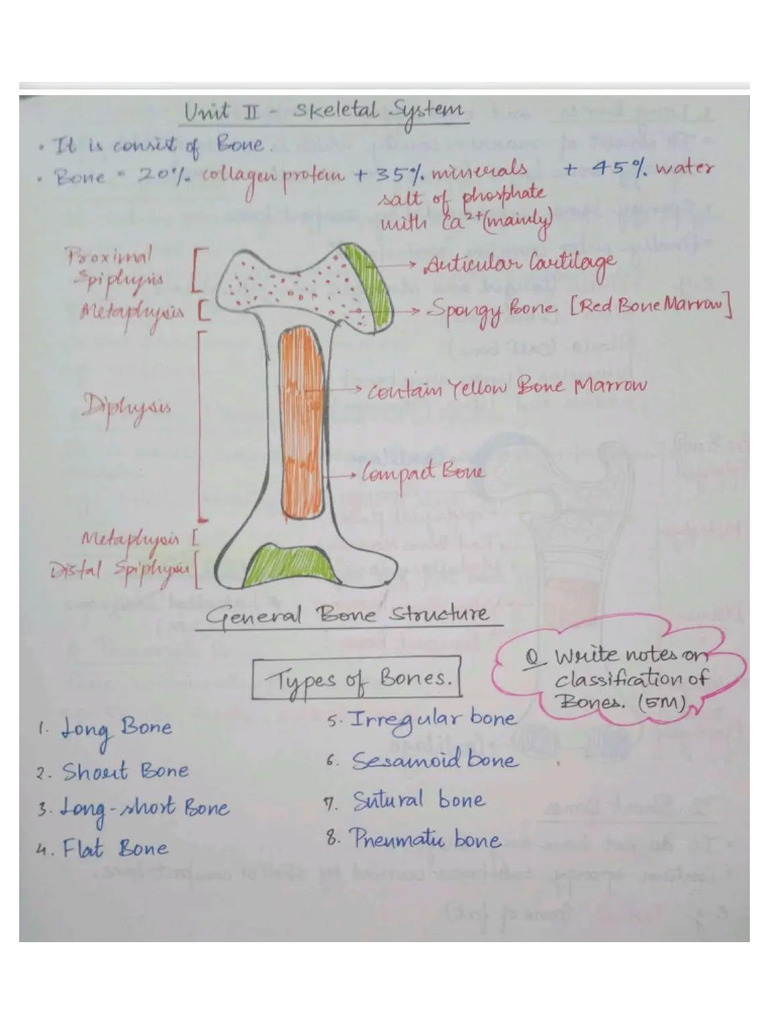 Unit II - Skeletal System
• It is consist of Bone.
• Bone = 20% collagen protein + 35% minerals + 45% water
salt of phosphate
with Ca2+ (mainly)
Proximal
Epiphysis
Articular Cartilage
Metaphysis
Spongy Bone [Red Bone Marrow]
Contain Yellow Bone Marrow
Diphysis
Compact Bone
Metaphysis
Distal Epiphysis
General Bone Structure
Types of Bones.
Q Write notes on
classification of
Bones. (5M)
1. Long Bone
2. Short Bone
3. Long-short Bone
4. Flat Bone
5. Irregular bone
6. Sesamoid bone
7. Sutural bone
8. Pneumatic bone